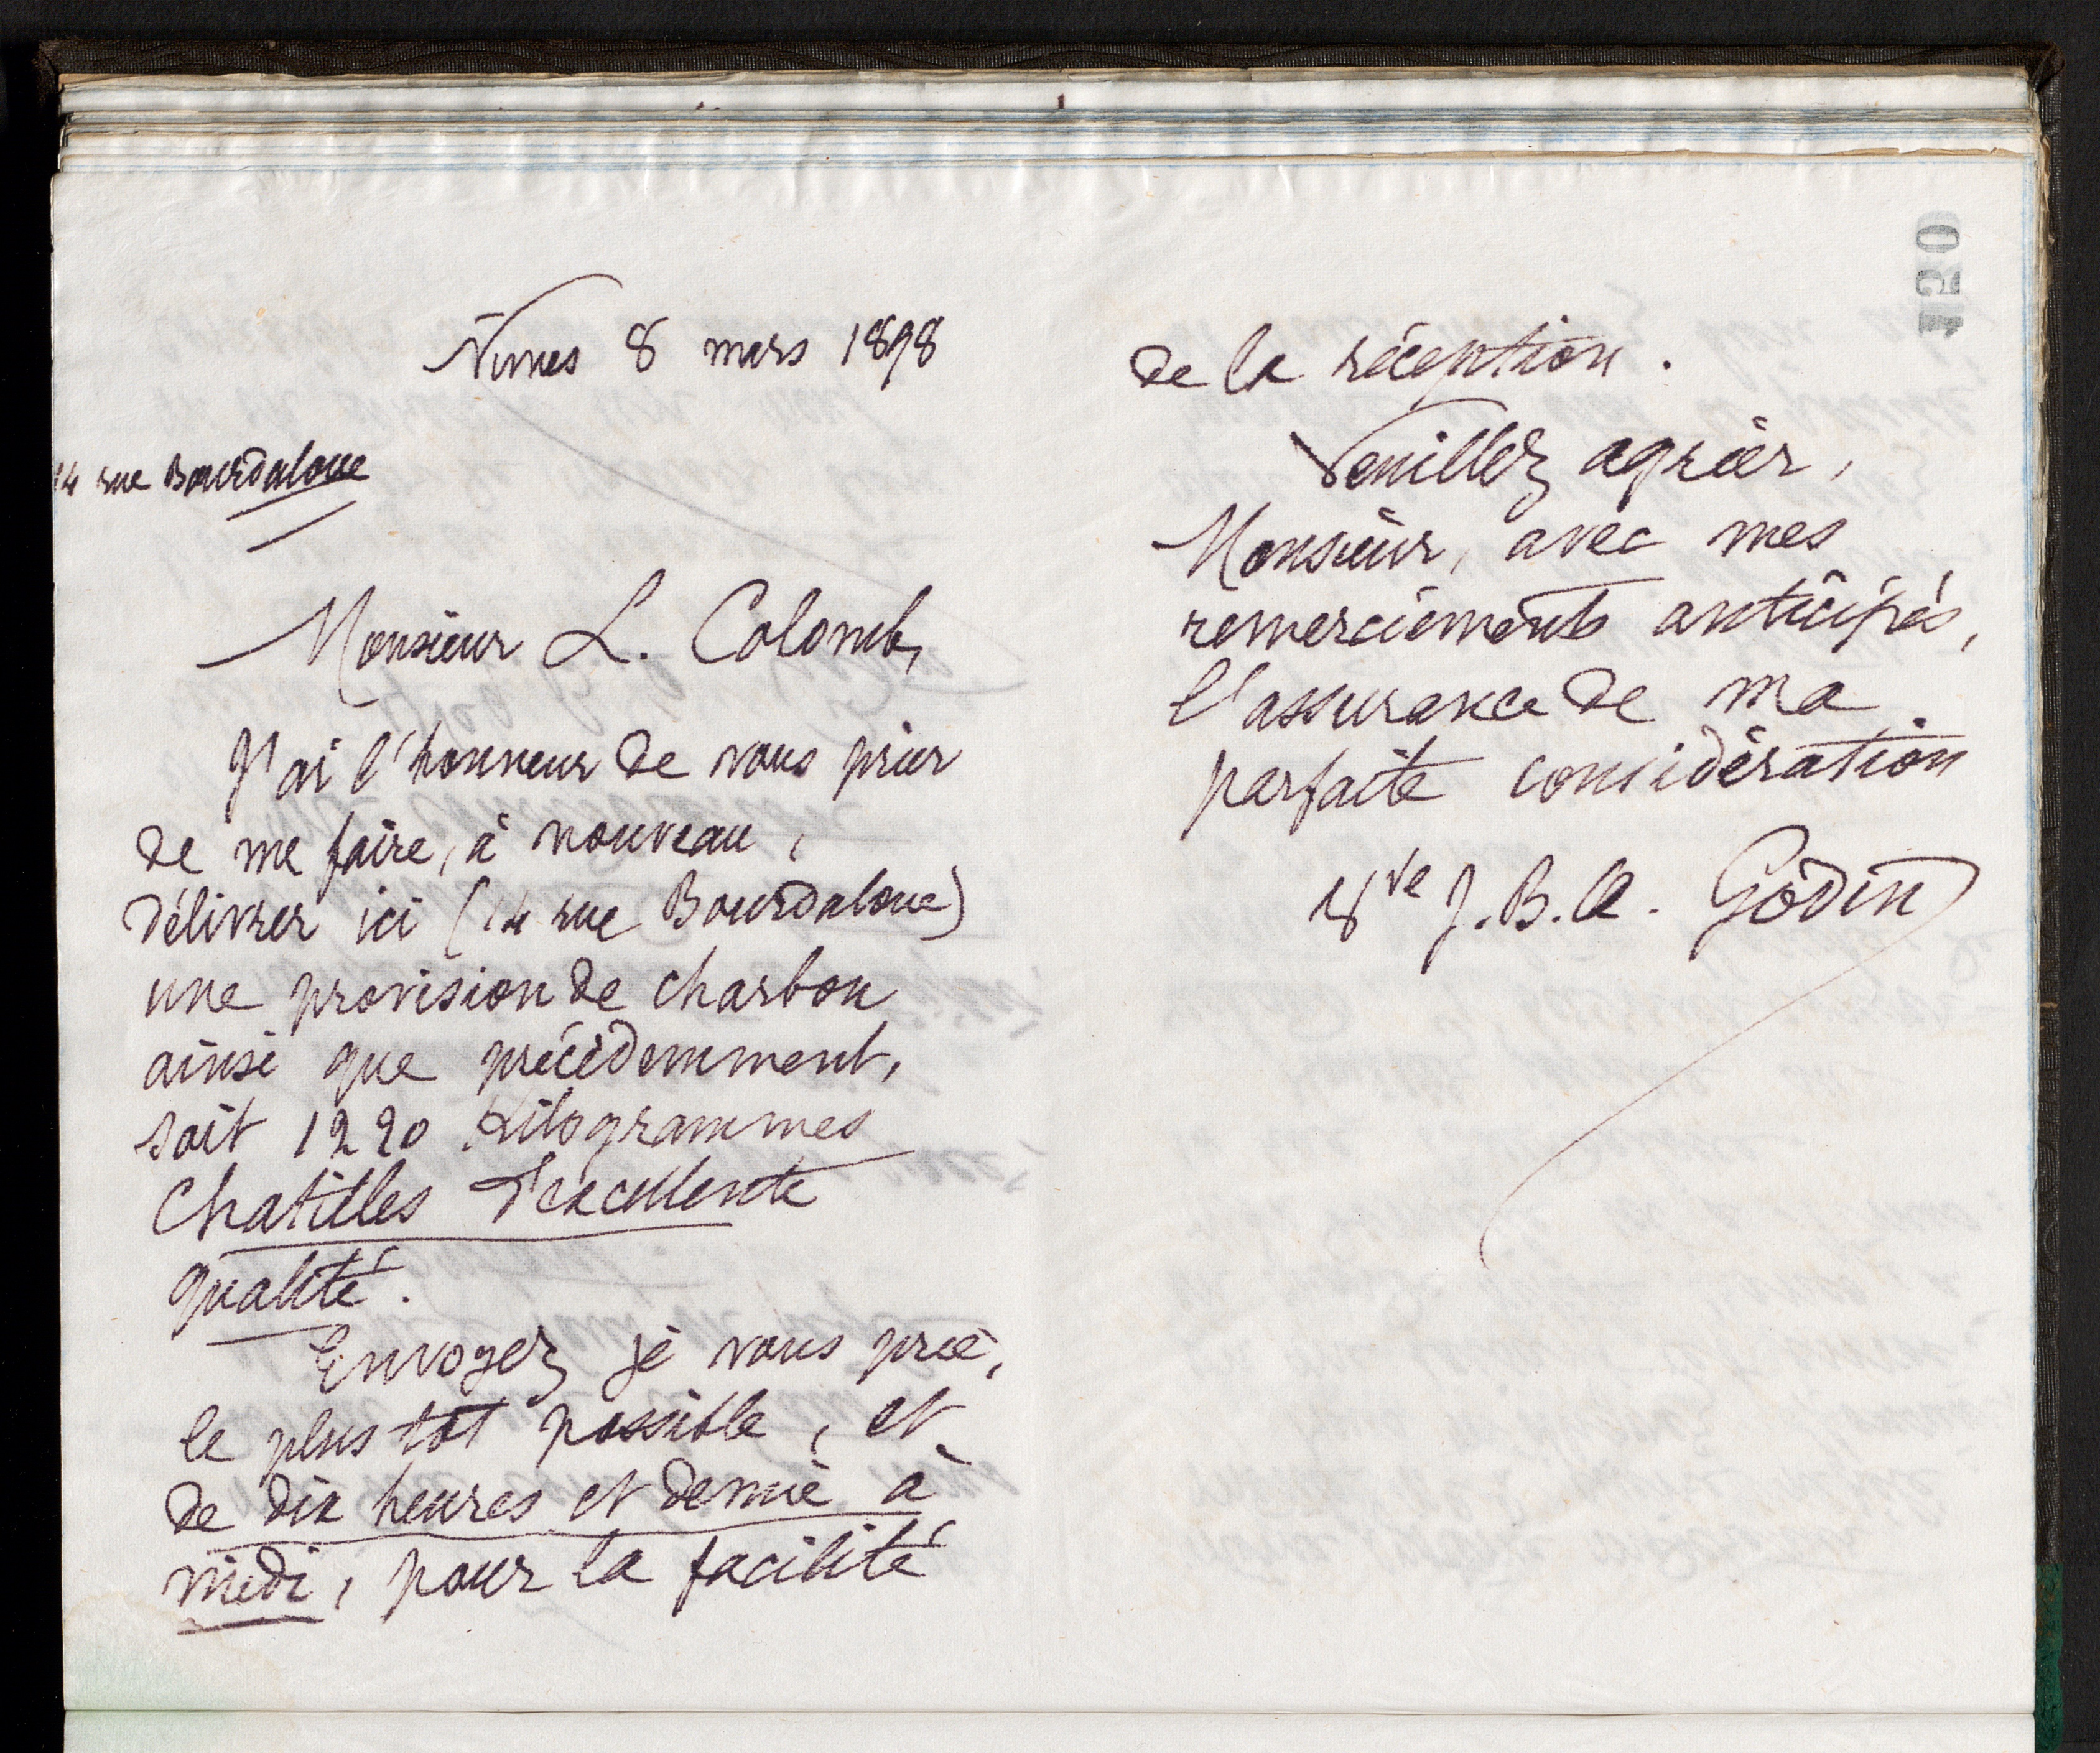 Nimes 8 mars 1898
14 rue Bourdaloue
Monsieur L. Colomb,
J'ai l'honneur de vous prier
de me faire, à nouveau,
délivrer ici (14 rue Bourdaloue)
une provision de charbon
ainsi que précédemment,
soit 1220 Kilogrammes
Chatilles d'excellente
qualité.
Envoyez je vous prie,
le plus tôt possible, et
de dix heures et demie à
midi, pour la facilité
de la réception.
Veuillez agréer,
Monsieur, avec mes
remerciements anticipés,
l'assurance de ma
parfaite considération
Vve J. B. A. Godin
120